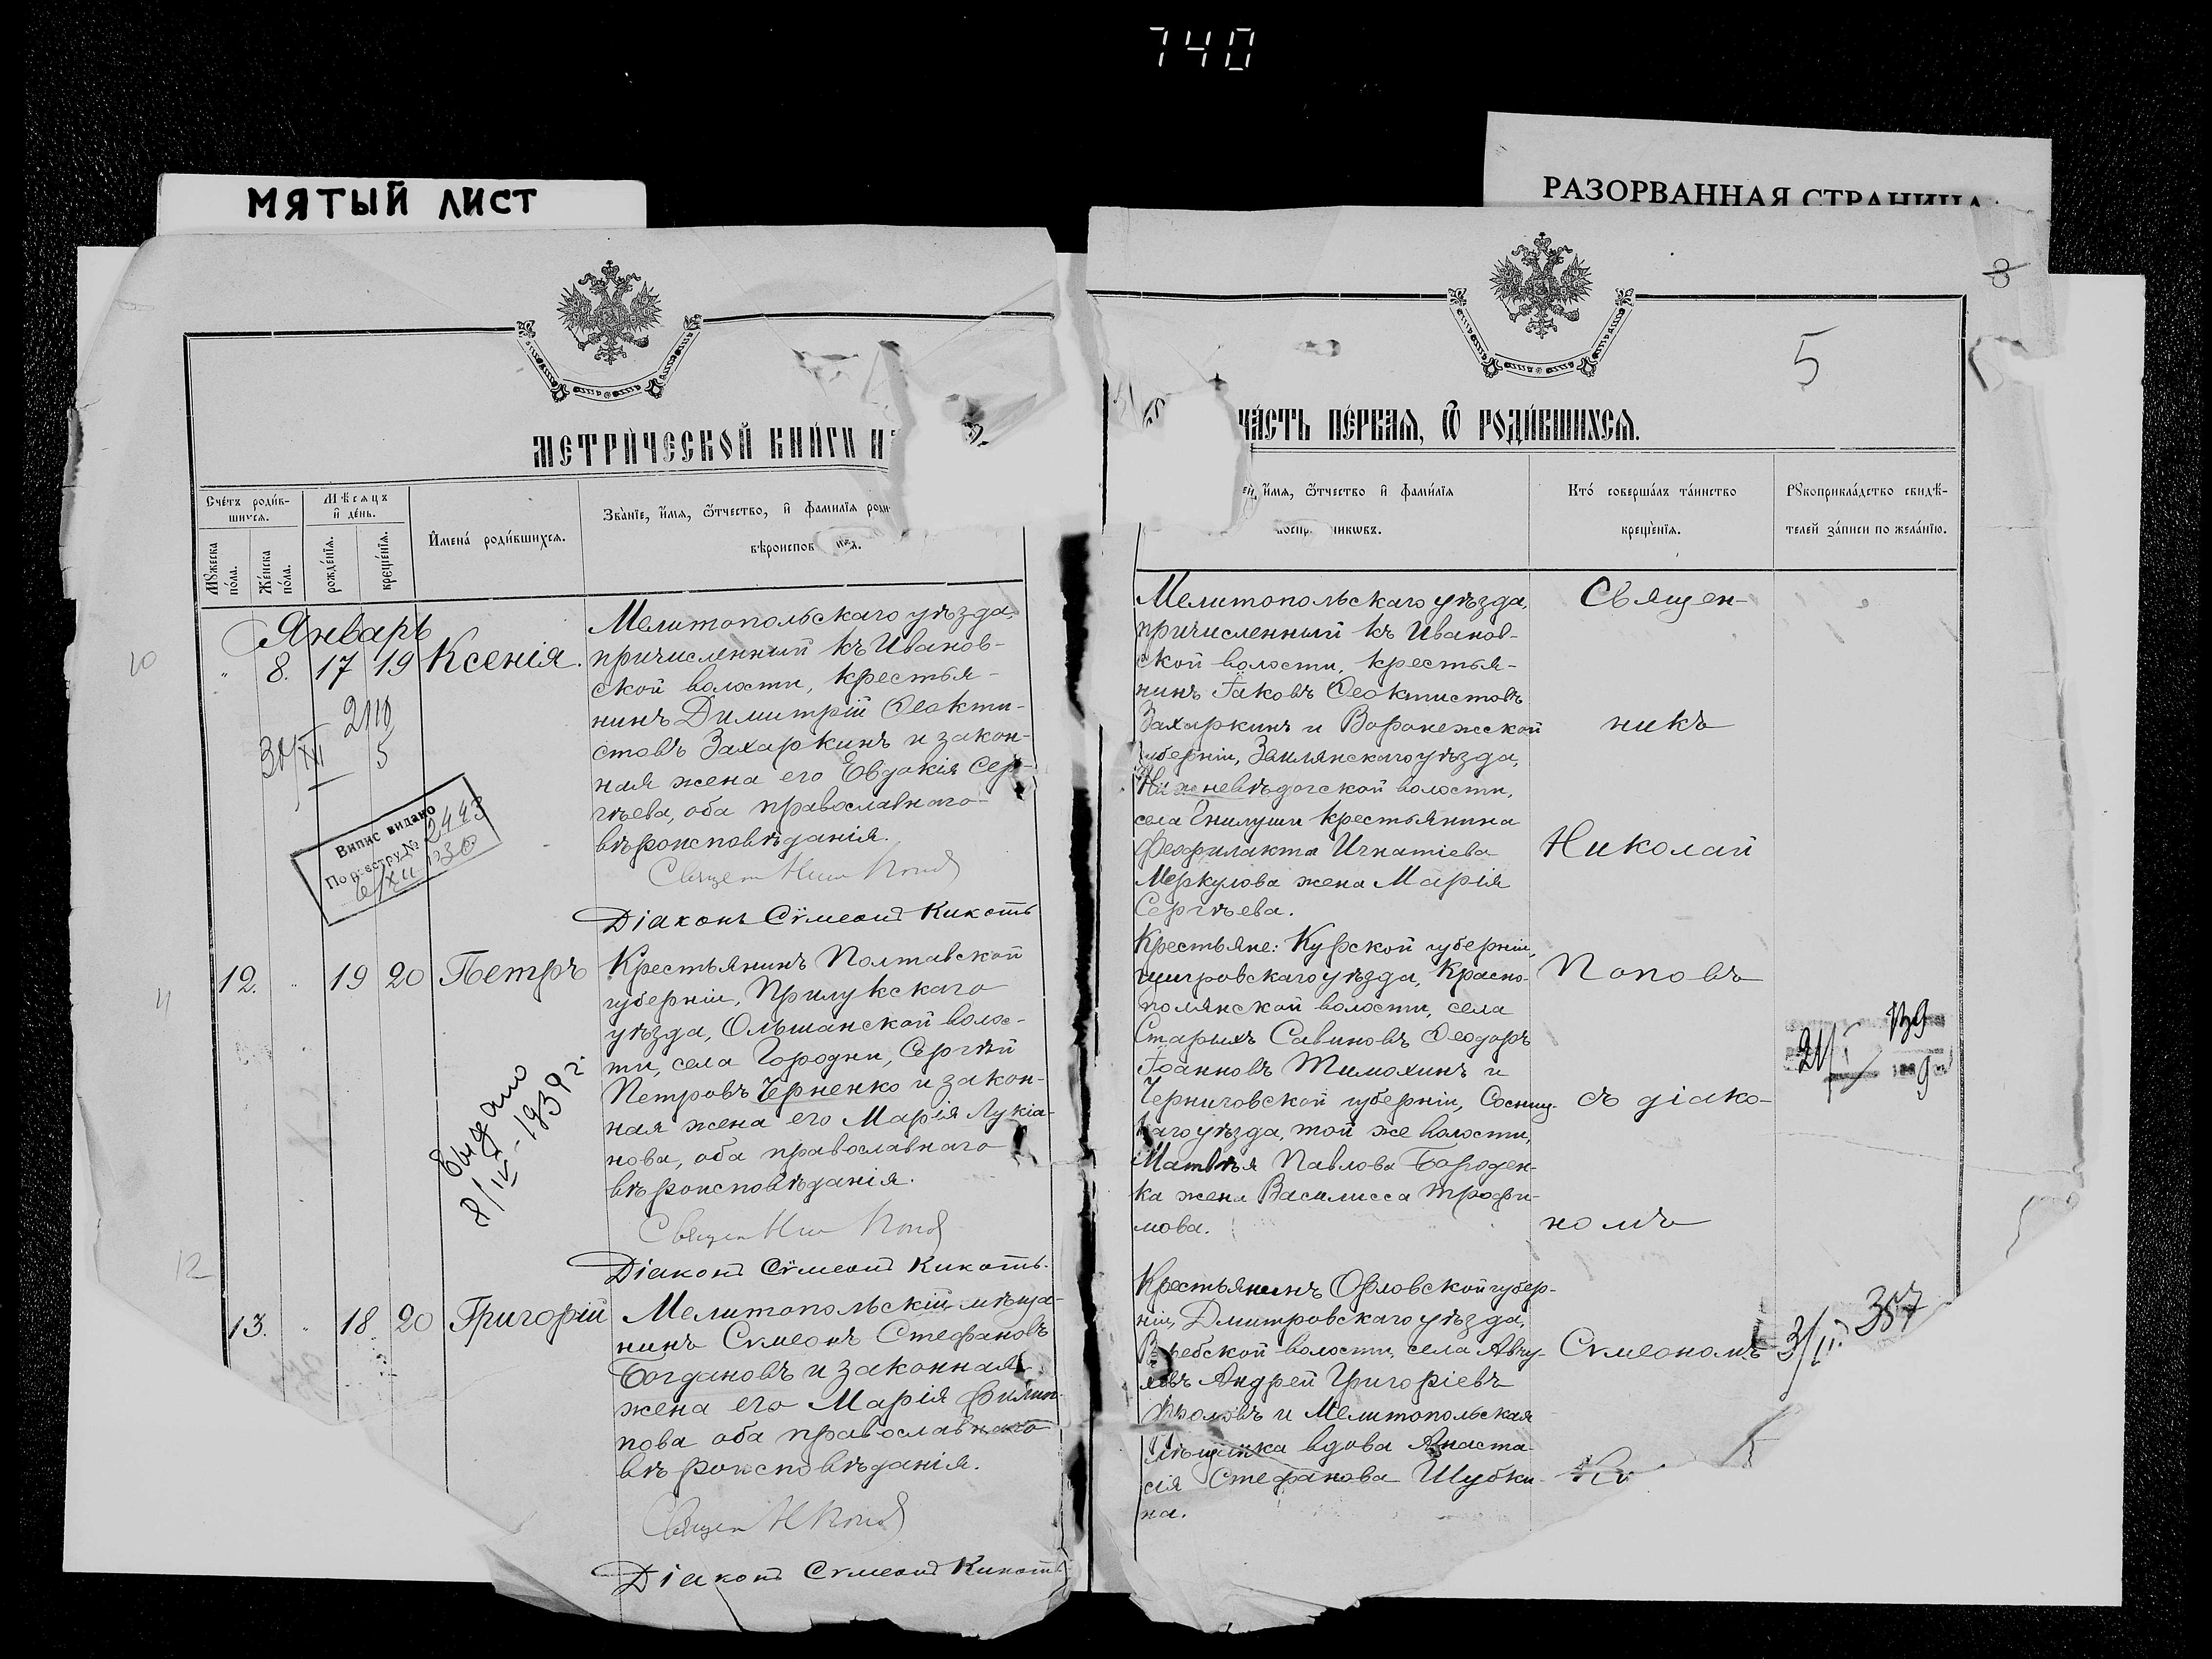 740
МЯТЫЙ ЛИСТ
РАЗОРВАННАЯ СТРАНИЦА
8
5
МЕТРИЧЕСКОЙ КНИГИ Н
ЧАСТЬ ПЕРВАЯ, Ѿ РОДИВШИХСЯ.
Счетъ родив-
шихся.
Мѣсяцъ
и день.
Мужеска
пола.
Женска
пола.
рожденія.
крещенія.
Имена родившихся.
Званіе, имя, ѿтчество, и фамилія роди
вѣроиспов
ей, имя, ѿтчество и фамилія
воспр никовъ.
Кто совершалъ таинство
крещенія.
Рукоприкладство свидѣ-
телей записи по желанію.
Январь
10
" 8. 17 19 Ксенія.
Мелитопольскаго уѣзда,
причисленный къ Иванов-
ской волости, крестья-
нинъ Димитрій Ѳеокти-
стовъ Захаркинъ и закон-
ная жена его Евдокія Сер-
гѣева, оба православнаго
вѣроисповѣданія.
Діаконъ Сѵмеонъ Кикоть
2110
5
Випис видано
По реестру № 2443
Мелитопольскаго уѣзда,
причисленный къ Иванов-
ской волости, крестья-
нинъ Іаковъ Ѳеоктистовъ
Захаркинъ и Воронежской
губерніи, Землянскаго уѣзда,
Нижневѣдогской волости,
села Гнилуши крестьянина
Феофилакта Игнатіева
Меркулова жена Марія
Сергѣева.
Священ-
никъ
Николай
Поповъ
съ діако-
номъ
Сѵмеономъ
11
12. " 19 20 Петръ
Крестьянинъ Полтавской
губерніи, Прилукскаго
уѣзда, Ольшанской волос-
ти, села Городни, Сергѣй
Петровъ Черненко и закон-
ная жена его Марія Лукіа-
нова, оба православнаго
вѣроисповѣданія.
Діаконъ Сѵмеонъ Кикоть.
Выдано
8/IV-1939 г.
Крестьяне: Курской губерніи,
щигровскаго уѣзда, Красно-
полянской волости, села
Старыхъ Савиновъ Ѳеодоръ
Іоанновъ Тимохинъ и
Черниговской губерніи, Сосниц-
каго уѣзда, той же волости,
Матвѣя Павлова Бороден-
ка жена Василисса Трофи-
мова.
12
13. " 18 20 Григорій
Мелитопольскій мѣща-
нинъ Сѵмеонъ Стефановъ
Богдановъ и законная
жена его Марія Филип-
пова оба православнаго
вѣроисповѣданія.
Діаконъ Сѵмеонъ Кикоть
Крестьянинъ Орловской губер-
ніи, Дмитровскаго уѣзда,
волости, села
Андрей Григоріевъ
Фроловъ и Мелитопольская
мѣщанка вдова Анаста-
сія Стефанова Шубки-
на.
3/II 357